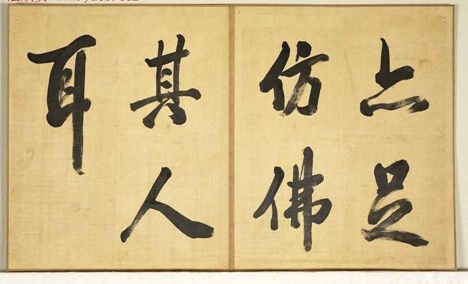 亦足
仿佛
其人
耳